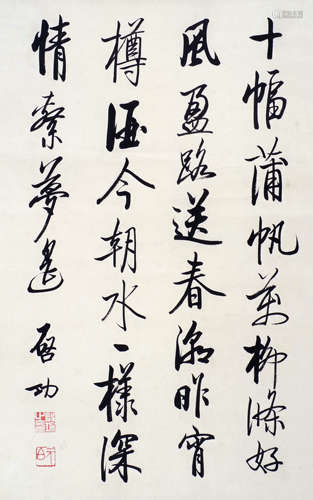 十幅蒲帆萬柳條好
風盈路送春潮昨宵
樽酒今朝水一樣深
情縈夢遥 啓功